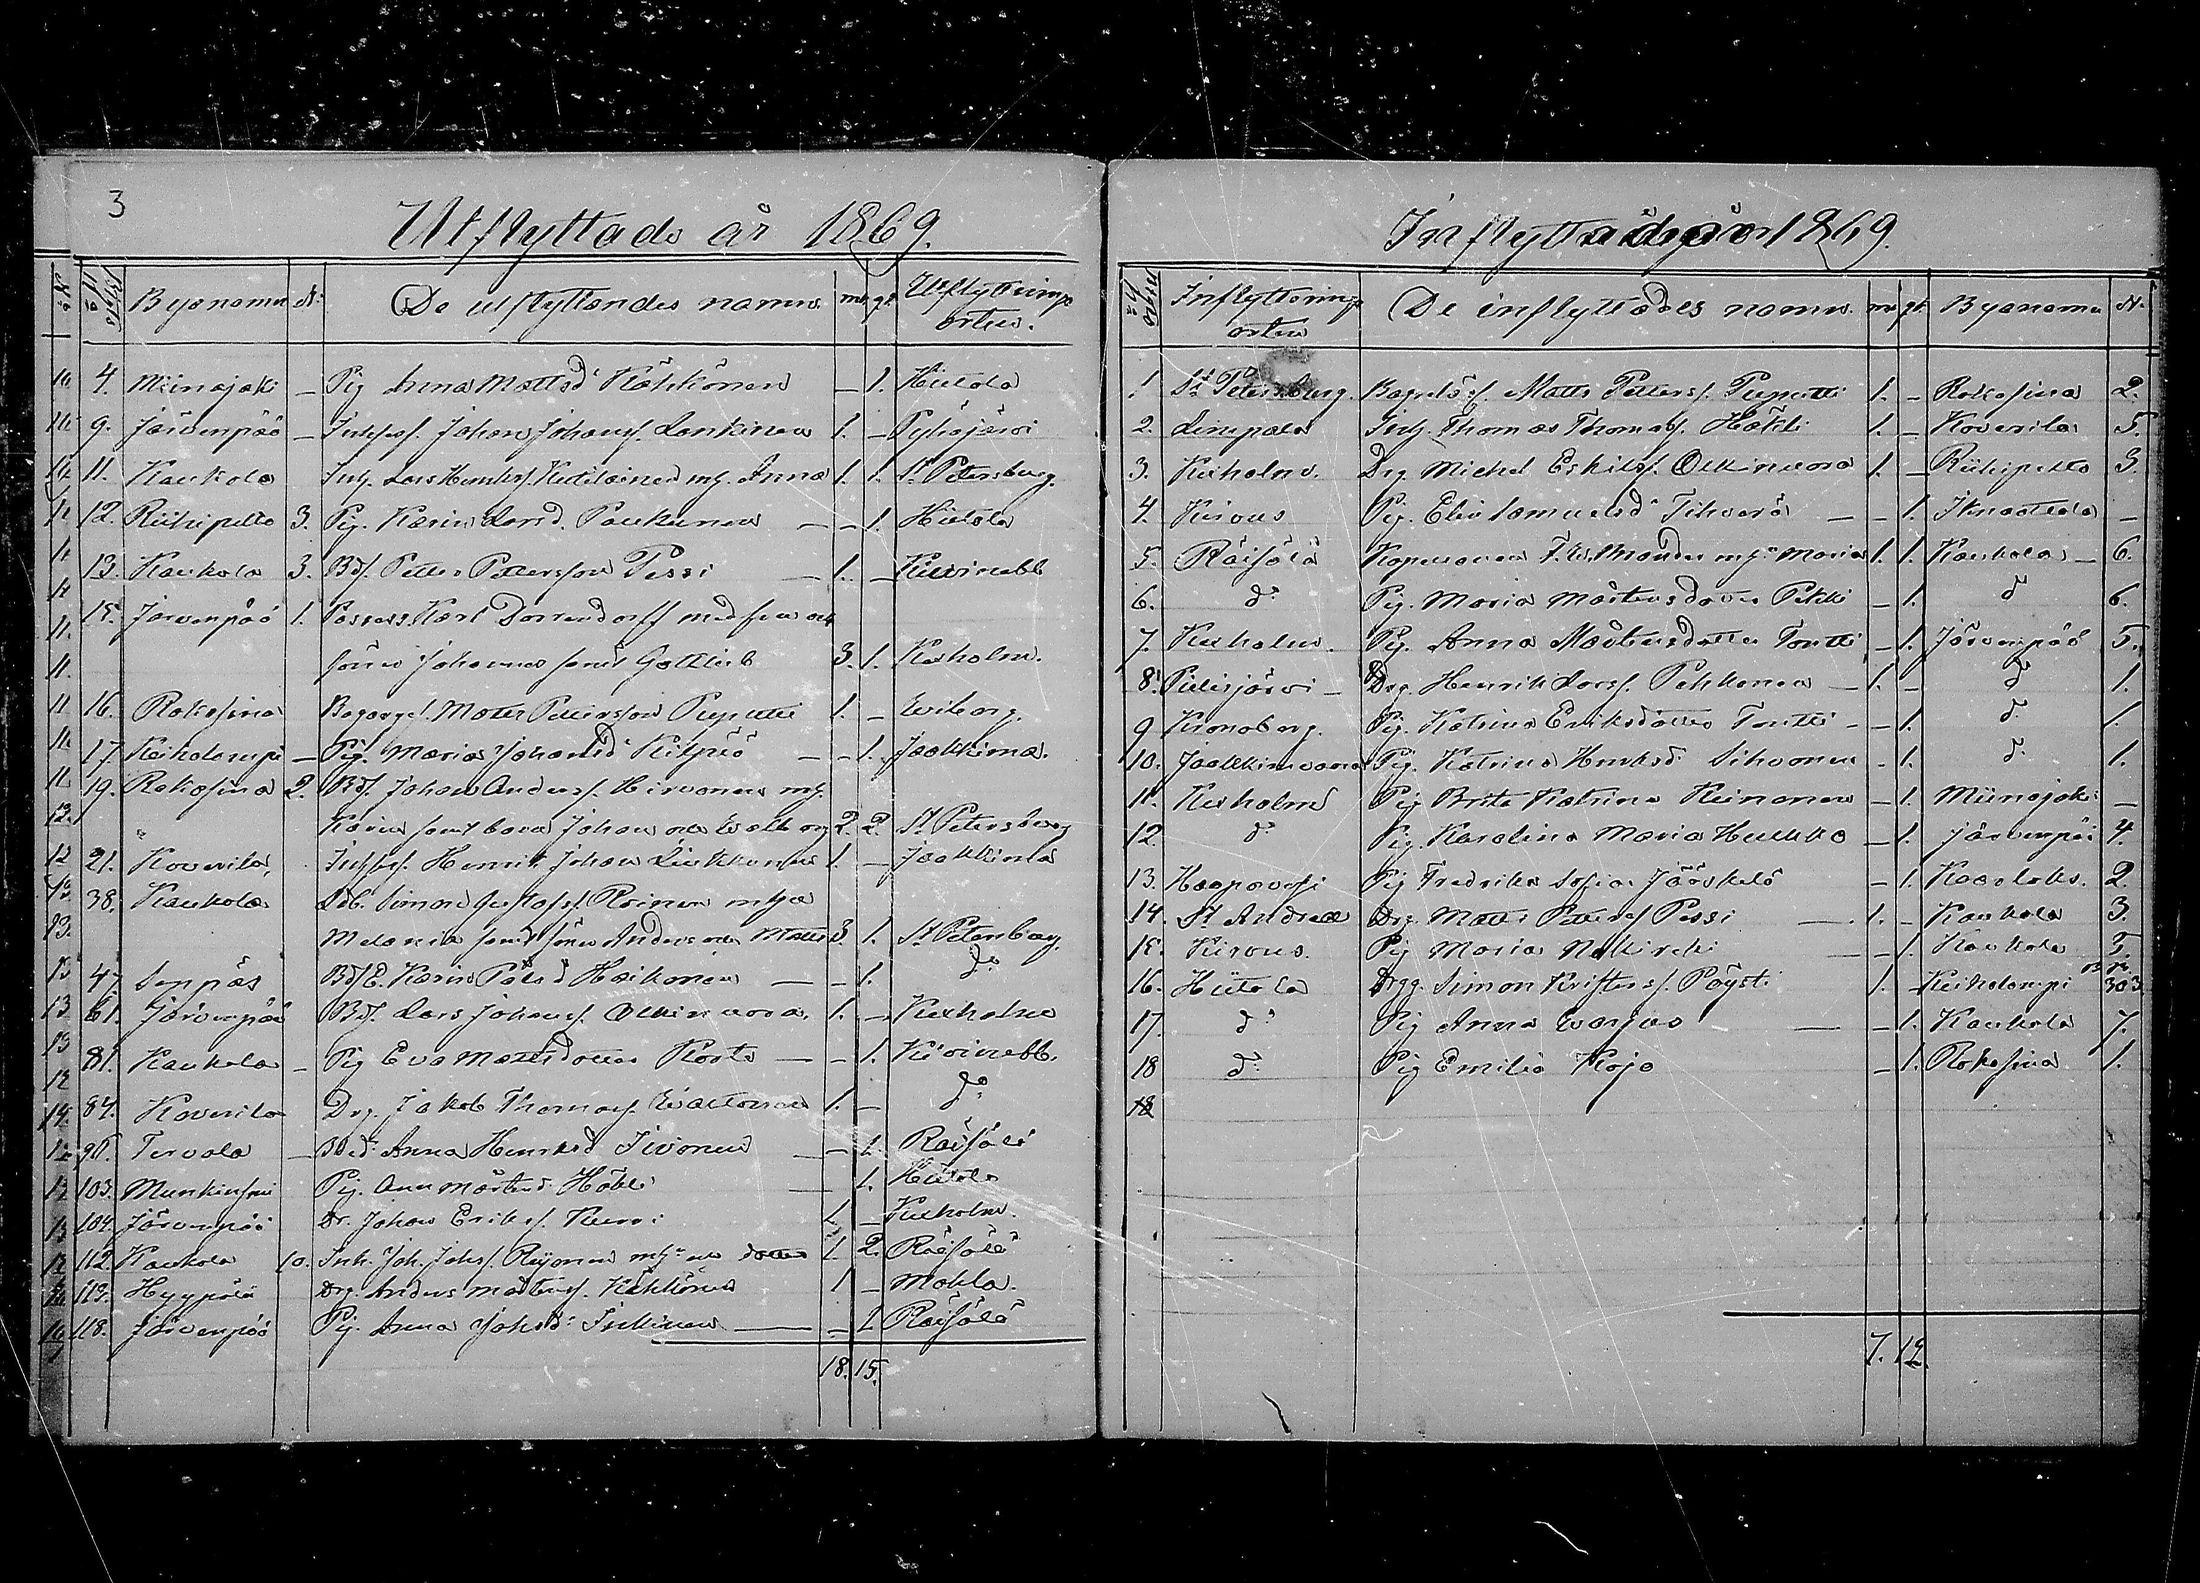 3
Utflyttade år 1869.
No Betets No Byanamn N: De utflyttandes namn. m. q. Utflyttnings orten.
4. Miinajoki – Pig Anna Mattsd Kähkönen – 1. Hiitola
9. Järvenpää – Inhyses. Johan Johansf. Lankinen 1. – Pyhäjärvi
11. Kaukola Inh. Lars Henriksf. Kutilainen mh. Anna 1. 1. St Petersburg.
12. Riihipelto 3. Pig. Karin Larsd. Paukkunen – – 1. Hiitola
13. Kaukola 3. Bdf. Petter Pettersson Pessi – 1. – Kivinebb
15. Järvenpää 1. Possess. Karl Dorrendorff med fru och
söner Johannes samt Gottlieb 3. 1. Kexholm.
16. Rokosina Bagarges. Matts Pettersson Puputti 1. – Wiborg.
17. Keikolampi – Pig. Maria Johansd Kilpiö – – 1. Jaakkima.
19. Rokosina 2. Bdf. Johan Andersf. Hirvonen mh.
Karin samt barn Johan och Walborg 2. 2. St Petersburg
21. Koverila, Inhyses. Henrik Johan Liukkonen 1. – Jaakkima
38. Kaukola Ldb. Simon Gustafsf. Roinen mhu
Melania samt söner Anders och Matts 3. 1. St Petersburg
47. Sorpas Bdf E. Karin Pålsd Haikonen – – 1. do
61. Järvenpää Bdf. Lars Johansf. Olkinuora. 1. – Kexholm
81. Kaukola – Pig Eva Mattsdotter Kosto – – 1. Kivinebb.
84. Koverila Drg. Jakob Thomasf. Waltonen 1. – do
90. Tervola – Bdd: Anna Henriksd Sivonen – – 1. Räisälä
103. Munkinsaari Pig. Ann Mårtensd Häkli – 1. Hiitola
104. Järvenpää Dr. Johan Eriksf. Kurri 1. – Kexholm.
112. Kaukola 10. Inh. Joh. Johsf. Reijonen mh: och dotter 1. 2. Räisälä
113. Hyypölä Drg. Anders Mårtensf. Kähkönen 1 – Mohla.
118. Järvenpää Pig. Anna Johsd: Inkinen – – 1 Räisälä
18. 15.
Inflyttade år 1869.
No Inflyttnings orten De inflyttades namn. m. q. Byanamn N.
1 St Petersburg. Bagarges. Matts Petters. Puputti 1. – Rokosina 2.
2. Lempala Inh. Thomas Thomasf. Häkli 1. – Koverila 5.
3. Kexholm. Drg. Michel Eskilsf. Olkinuora 1. – Riihipelto 3.
4. Kirvus Pig. Elin Samuelsd Tihverä – – 1. Ilmastola –
5. Räisälä Kopparen F. W. Mander mh: Maria 1. 1. Kaukola – 6.
6. do Pig. Maria Mårtensdotter Pekki – 1. do 6.
7. Kexholm. Pig. Anna Mårtensdotter Tontti – 1. Järvenpää 5.
8. Pielisjärvi – Drg. Henrik Larsf. Pehkonen – 1. – do 1.
9 Kronoborg. Pig. Katrina Eriksdotter Tontti – – 1. do 1.
10. Jaakkimvaara Pig. Katrina Henriksd Sihvonen – 1. do 1.
11. Kexholm Pig. Brita Katrina Keinonen – 1. Miinajoki –
12. do Pig. Karolina Maria Hukka – 1. Järvenpää 4.
13. Haapavesi Pig Fredrika Sofia Jääskelä – 1. Kaukola. 2.
14. St Andreæ Drg. Matts Petters Pessi – 1. – Kaukola 3.
15. Kirvus. Pig Maria Nokireki – – 1. Kaukola 5.
16. Hiitola Drgg. Simon Kristersf. Pöysti 1. – Keikolampi 303
17. do Pig Anna Warjus – – 1. Kaukola 7.
18 do Pig Emilia Kojo – 1. Rokosina 1.
18
7. 12.